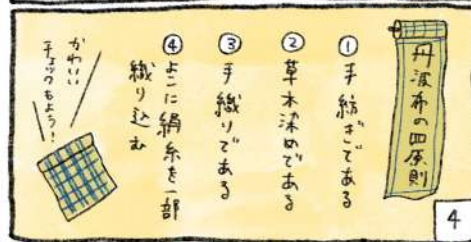 丹波布の四原則
① 手紡ぎである
② 草木染めである
③ 手織りである
④ よこに絹糸を一部
織り込む
かわいい
チェックもよう!
4